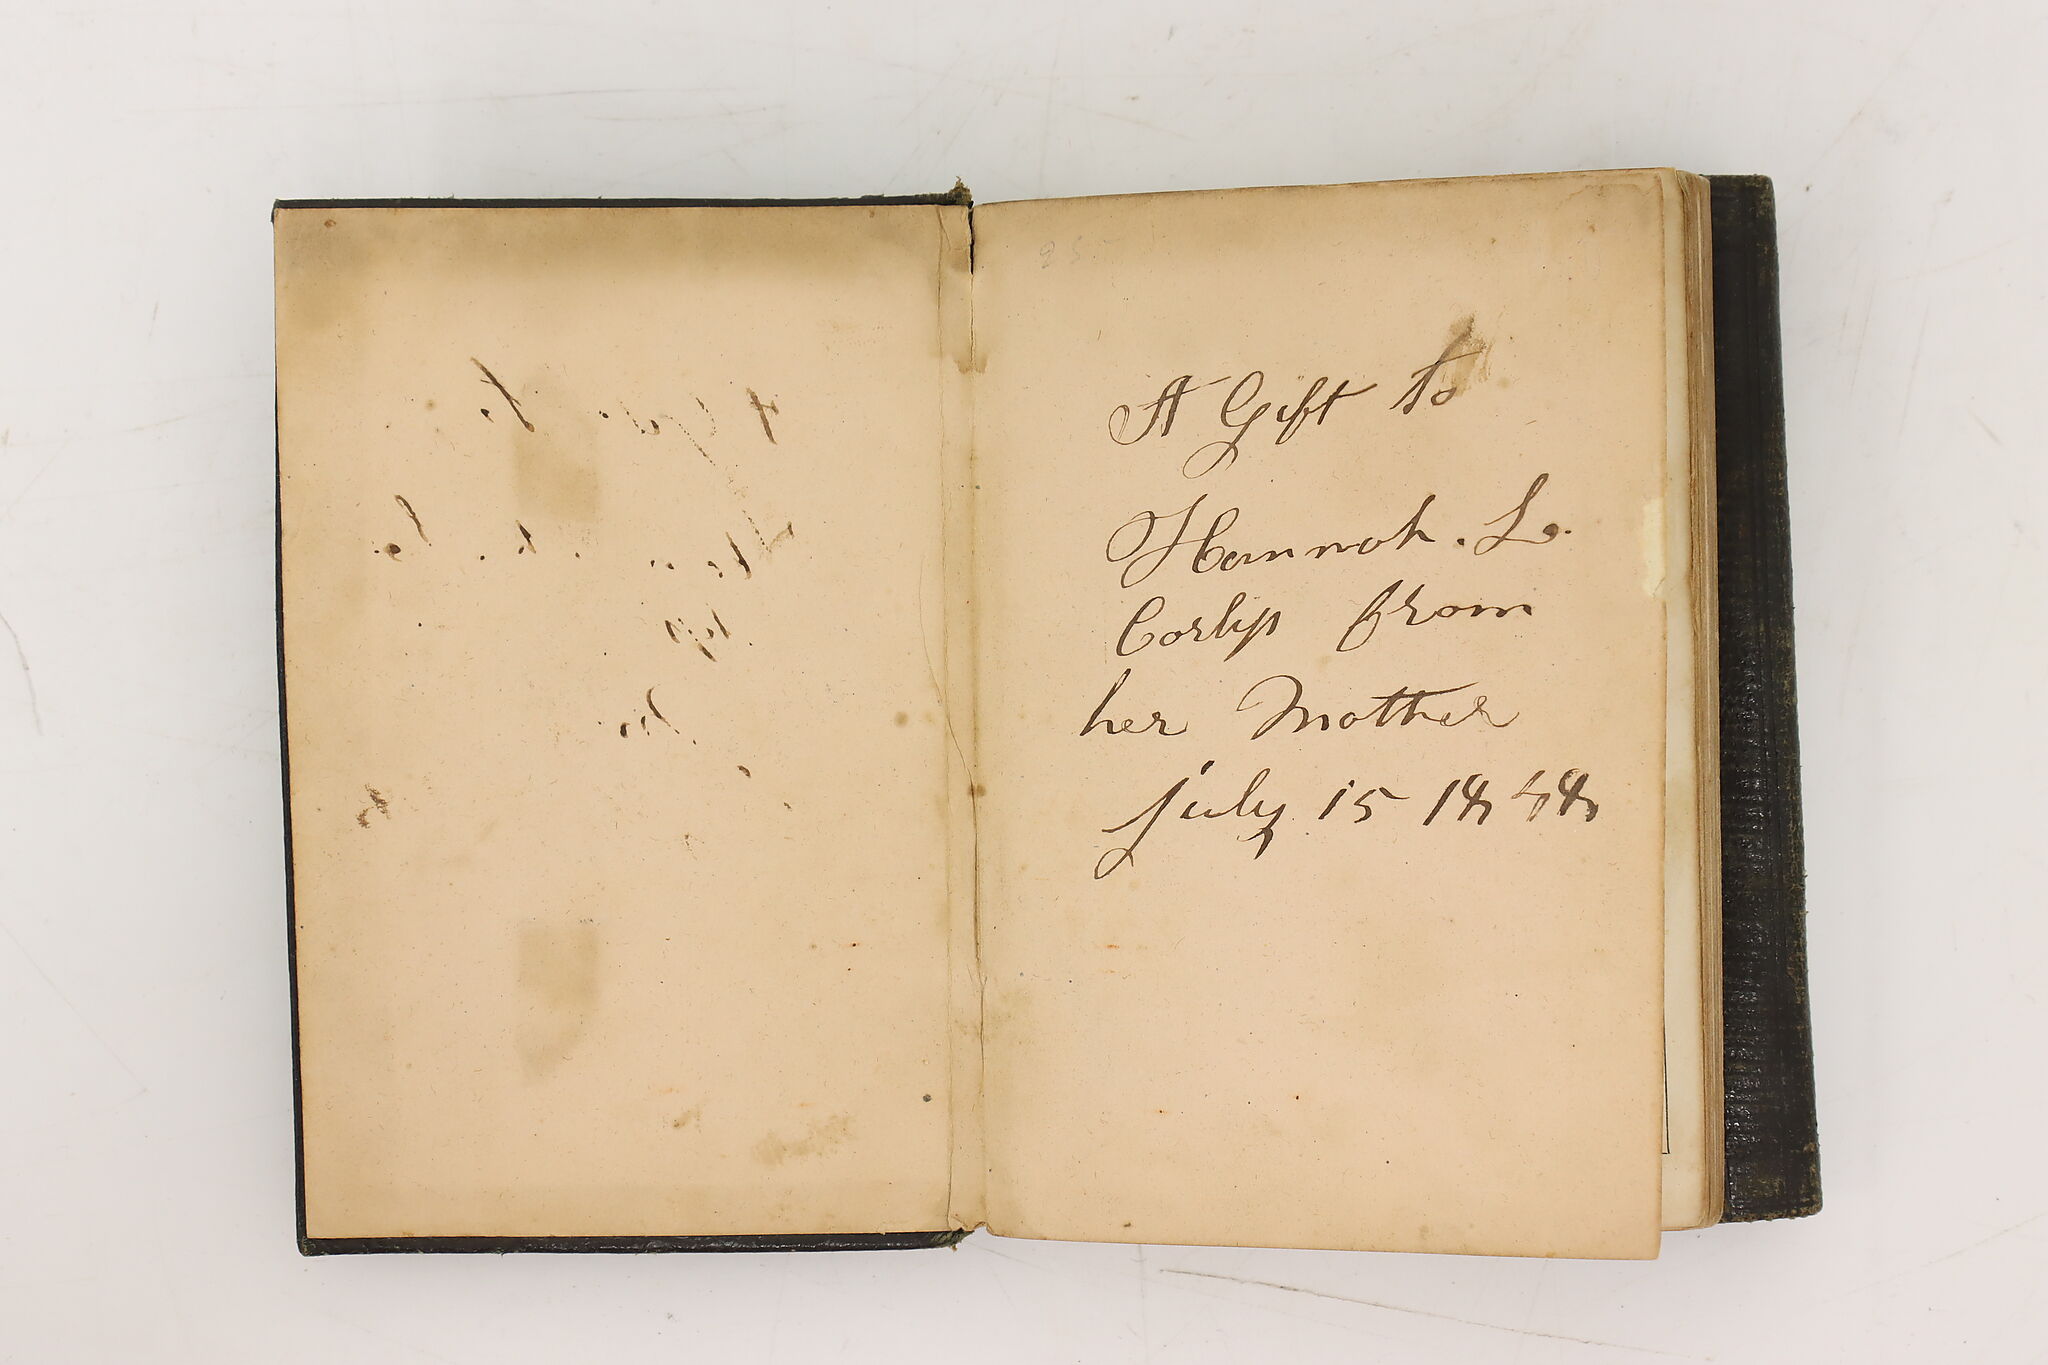 25
A Gift to
Hannah. L.
Corliſs from
her Mother
july 15